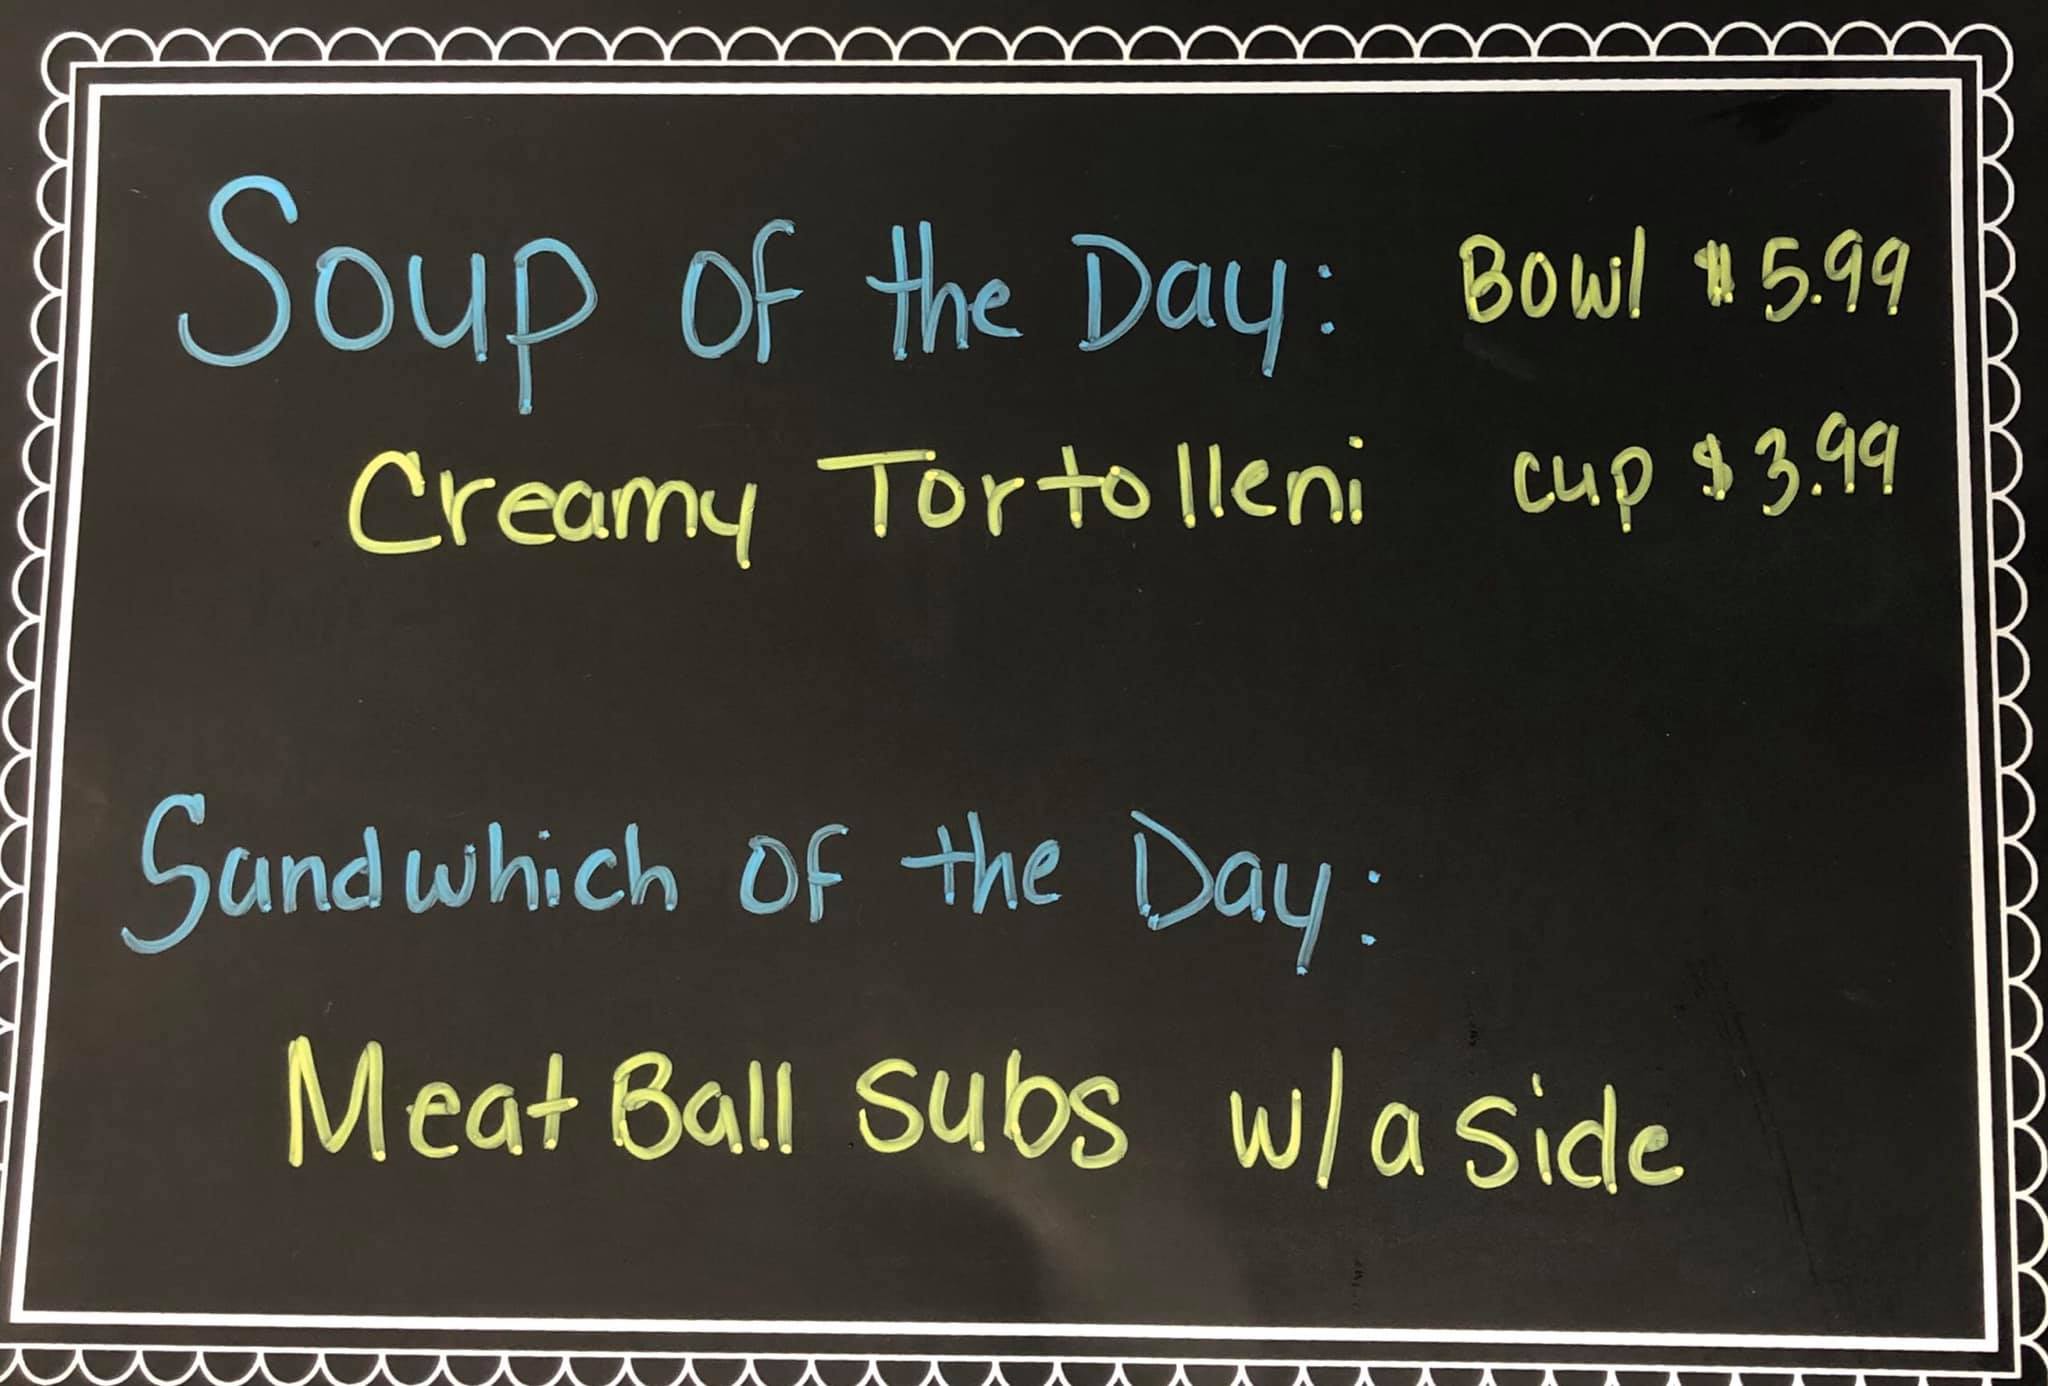 Soup of the Day: Bowl $5.99
Creamy Tortolleni cup $3.99
Sandwhich of the Day:
Meat Ball Subs w/a side